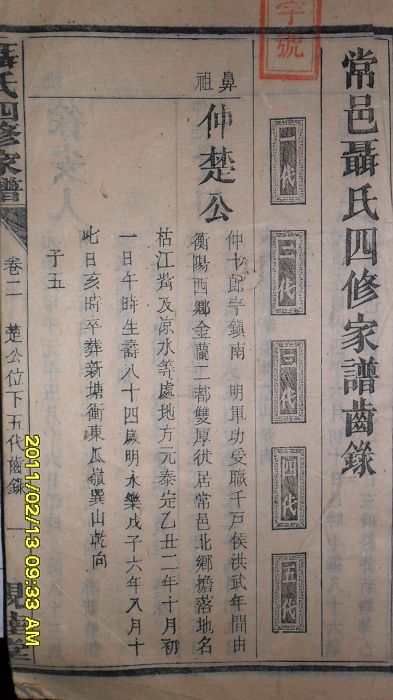 字號
常邑聶氏四修家譜齒錄
一代
二代
三代
四代
五代
鼻祖
仲楚公
仲十郎字鎮南 明軍功爰職千戶侯洪武年間由
衡陽西鄉金蘭二都雙厚徙居常邑北鄉擔落地名
枯江觜及凉水等處地方元泰定乙丑二年十月初
一日午時生壽八十四歲明永樂戊子六年八月十
七日亥時卒葬新塘衝東瓜嶺巽山乾向
子五
聶氏四修家譜
卷二
楚公位下五代齒錄
一
2011/02/13 09:33 AM